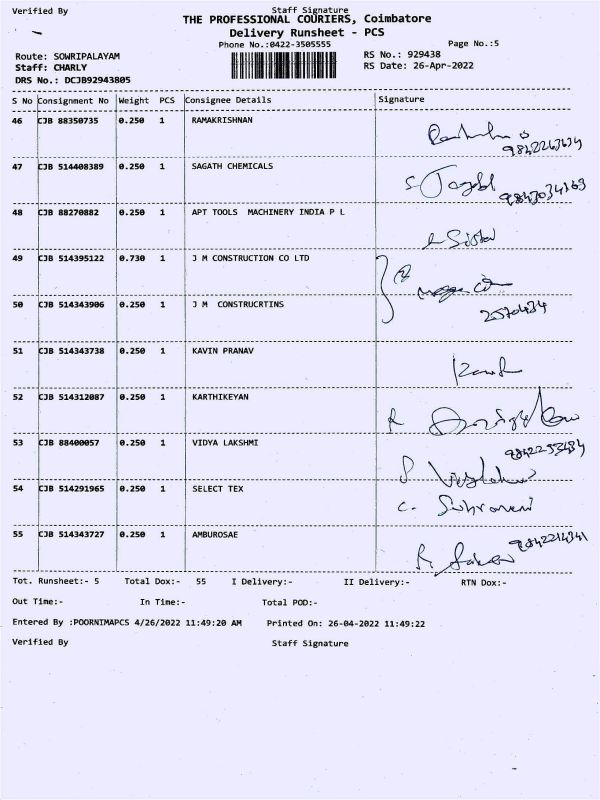 Verified By Staff Signature
THE PROFESSIONAL COURIERS, Coimbatore
Delivery Runsheet - PCS
Phone No.:0422-3505555 Page No.:5
Route: SOWRIPALAYAM RS No.: 929438
Staff: CHARLY RS Date: 26-Apr-2022
DRS No.: DCJB92943805
S No Consignment No Weight PCS Consignee Details Signature
46 CJB 88350735 0.250 1 RAMAKRISHNAN
47 CJB 514408389 0.250 1 SAGATH CHEMICALS
48 CJB 88270882 0.250 1 APT TOOLS MACHINERY INDIA P L
49 CJB 514395122 0.730 1 J M CONSTRUCTION CO LTD
50 CJB 514343906 0.250 1 J M CONSTRUCRTINS
2570434
51 CJB 514343738 0.250 1 KAVIN PRANAV
52 CJB 514312087 0.250 1 KARTHIKEYAN
53 CJB 88400057 0.250 1 VIDYA LAKSHMI
54 CJB 514291965 0.250 1 SELECT TEX
55 CJB 514343727 0.250 1 AMBUROSAE
9842214341
Tot. Runsheet:- 5 Total Dox:- 55 I Delivery:- II Delivery:- RTN Dox:-
Out Time:- In Time:- Total POD:-
Entered By :POORNIMAPCS 4/26/2022 11:49:20 AM Printed On: 26-04-2022 11:49:22
Verified By Staff Signature